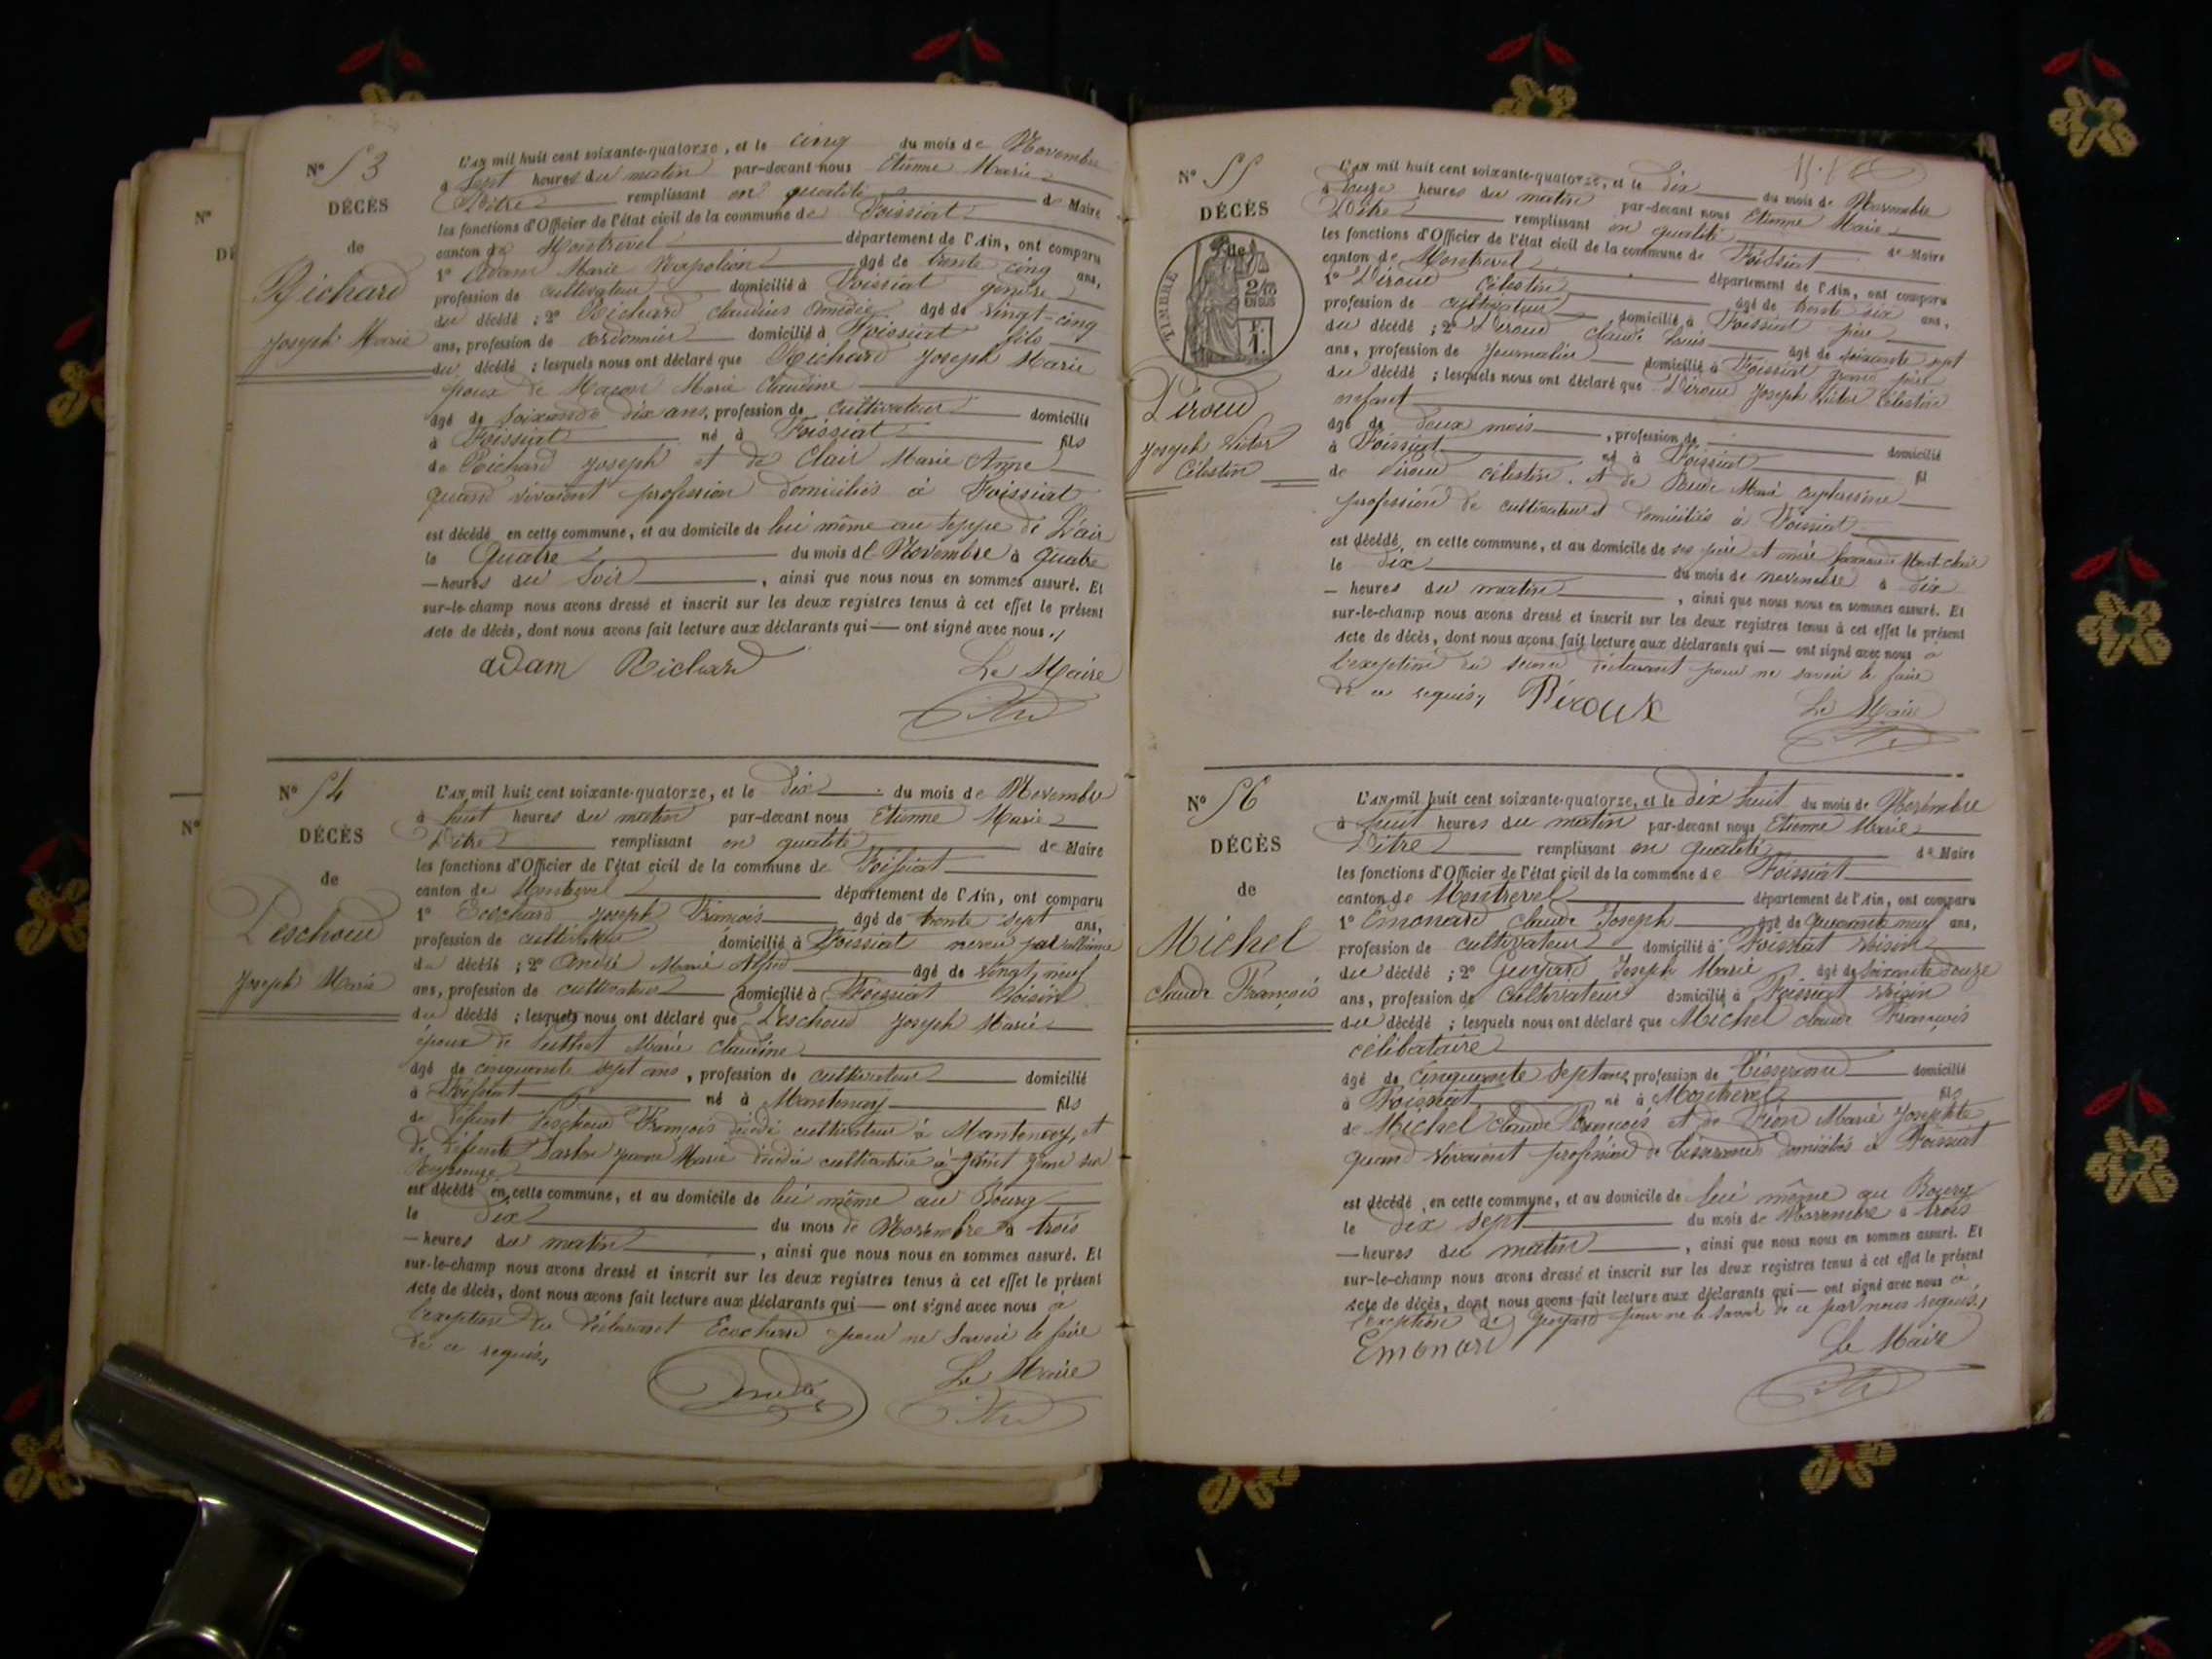 N° 53
DÉCÈS
de
Richard
Joseph Marie
L'AN mil huit cent soixante-quatorze, et le cinq du mois de Novembre
à Sept heures du matin par-devant nous Etienne Marie
remplissant en qualité de Maire
les fonctions d'Officier de l'état civil de la commune de Foissiat
canton de Montrevel département de l'Ain, ont comparu
1° Adam Marie Napoléon âgé de trente cinq ans,
profession de cultivateur domicilié à Foissiat gendre
du décédé ; 2° Richard claudius Amédée âgé de vingt-cinq
ans, profession de cordonnier domicilié à Foissiat fils
du décédé ; lesquels nous ont déclaré que Richard Joseph Marie
époux de Marie Claudine
âgé de soixante dix ans, profession de cultivateur domicilié
à Foissiat né à Foissiat fils
de Richard Joseph et de Clair Marie Anne
quand vivaient profession domiciliés à Foissiat
est décédé en cette commune, et au domicile de lui même au
le Quatre du mois de Novembre à quatre
heures du soir, ainsi que nous nous en sommes assuré. Et
sur-le-champ nous avons dressé et inscrit sur les deux registres tenus à cet effet le présent
Acte de décès, dont nous avons fait lecture aux déclarants qui — ont signé avec nous
adam Richard Le Maire
N° 54
DÉCÈS
de
Peschoud
Joseph Marie
L'AN mil huit cent soixante-quatorze, et le dix du mois de Novembre
à huit heures du matin par-devant nous Etienne Marie
remplissant en qualité de Maire
les fonctions d'Officier de l'état civil de la commune de Foissiat
canton de Montrevel département de l'Ain, ont comparu
1° Ecochard Joseph François âgé de trente sept ans,
profession de cultivateur domicilié à Foissiat neveu par alliance
du décédé ; 2° André Marie Alfred âgé de vingt neuf
ans, profession de cultivateur domicilié à Foissiat Voisin
du décédé ; lesquels nous ont déclaré que Peschoud Joseph Marie
époux de Marie Claudine
âgé de cinquante sept ans, profession de cultivateur domicilié
à Foissiat né à Mantenay fils
de défunt Peschoud François décédé cultivateur à Mantenay, et
de défunte Marie décédée cultivatrice à Saint Jean sur
Reyssouze
est décédé en cette commune, et au domicile de lui même au Bourg
le dix du mois de Novembre à trois
— heures du matin, ainsi que nous nous en sommes assuré. Et
sur-le-champ nous avons dressé et inscrit sur les deux registres tenus à cet effet le présent
Acte de décès, dont nous avons fait lecture aux déclarants qui — ont signé avec nous à
l'exception du déclarant Ecochard pour ne savoir le faire
de ce requis,
André Le Maire
N° 55
DÉCÈS
de
TIMBRE
2/10
EN SUS
Péroud
Joseph Victor
Célestin
L'AN mil huit cent soixante-quatorze, et le dix du mois de Novembre
à douze heures du matin par-devant nous Etienne Marie
remplissant en qualité de Maire
les fonctions d'Officier de l'état civil de la commune de Foissiat
canton de Montrevel département de l'Ain, ont comparu
1° Péroud Célestin âgé de trente six ans,
profession de cultivateur domicilié à Foissiat père
du décédé ; 2° Péroud Claude Louis âgé de soixante sept
ans, profession de Journalier domicilié à Foissiat grand père
du décédé ; lesquels nous ont déclaré que Péroud Joseph Victor Célestin
enfant
âgé de deux mois, profession de domicilié
à Foissiat né à Foissiat fil
de Péroud célestin et de Marie
profession de cultivateurs domiciliés à Foissiat
est décédé en cette commune, et au domicile de ses père et mère
le dix du mois de novembre à dix
— heures du matin, ainsi que nous nous en sommes assuré. Et
sur-le-champ nous avons dressé et inscrit sur les deux registres tenus à cet effet le présent
Acte de décès, dont nous avons fait lecture aux déclarants qui — ont signé avec nous à
l'exception du second déclarant pour ne savoir le faire
de ce requis, Péroux Le Maire
N° 56
DÉCÈS
de
Michel
claude François
L'AN mil huit cent soixante-quatorze, et le dix huit du mois de Novembre
à huit heures du matin par-devant nous Etienne Marie
remplissant en qualité de Maire
les fonctions d'Officier de l'état civil de la commune de Foissiat
canton de Montrevel département de l'Ain, ont comparu
1° Emonard Claude Joseph âgé de quarante neuf ans,
profession de cultivateur domicilié à Foissiat voisin
du décédé ; 2° Guyard Joseph Marie âgé de soixante douze
ans, profession de cultivateur domicilié à Foissiat voisin
du décédé ; lesquels nous ont déclaré que Michel claude François
célibataire
âgé de cinquante sept ans, profession de tisserand domicilié
à Foissiat né à Montrevel fils
de Michel Claude François et de Marie Josephte
quand vivaient profession de tisserand domiciliés à Foissiat
est décédé en cette commune, et au domicile de lui même au Bourg
le dix sept du mois de Novembre à trois
— heures du matin, ainsi que nous nous en sommes assuré. Et
sur-le-champ nous avons dressé et inscrit sur les deux registres tenus à cet effet le présent
Acte de décès, dont nous avons fait lecture aux déclarants qui — ont signé avec nous à
l'exception de Guyard pour ne le savoir de ce par nous requis,
Emonard Le Maire